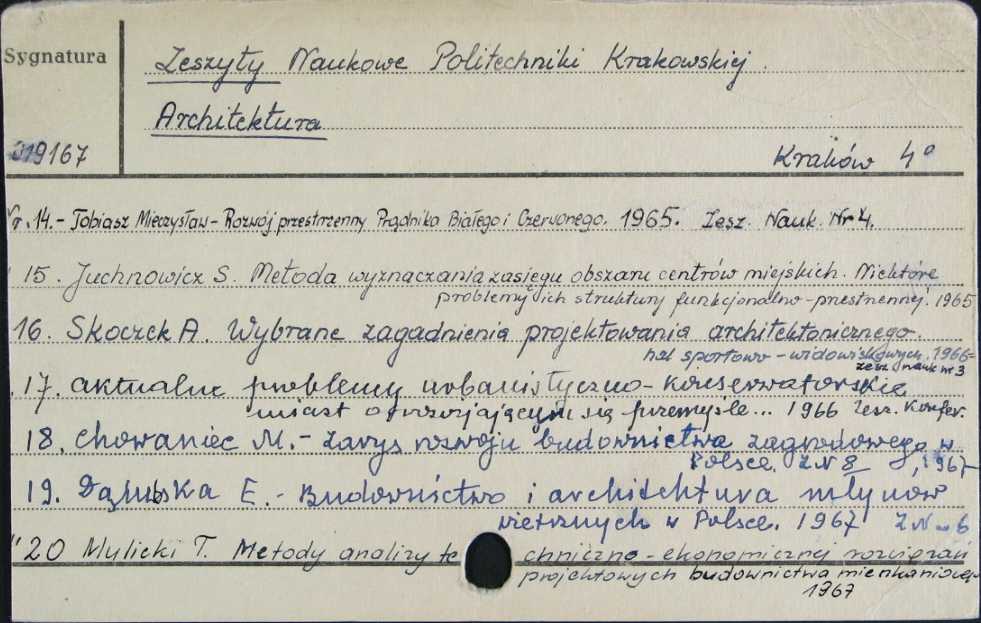 Sygnatura
Zeszyty Naukowe Politechniki Krakowskiej.
Architektura
019167
Kraków 4°
Nr. 14. - Tobiasz Mieczysław - Rozwój przestrzenny Prądnika Białego i Czerwonego. 1965. Zesz. Nauk. Nr 4.
" 15. Juchnowicz S. Metoda wyznaczania zasięgu obszaru centrów miejskich. Niektóre
problemy ich struktury funkcjonalno-przestrzennej. 1965
16. Skoczek A. Wybrane zagadnienia projektowania architektonicznego.
hal sportowo-widowiskowych. 1966 -
zesz. nauk nr 3
17. aktualne problemy urbanistyczno-konserwatorskie
miast o rozwijającym się przemyśle... 1966 Zesz. Konfer.
18. Chowaniec M. - Zarys rozwoju budownictwa zagrodowego w
Polsce, Z N 8, 1967
19. Dąbska E. - Budownictwo i architektura młynów
wietrznych w Polsce. 1967 Z N - 6
" 20 Mylicki T. Metody analizy techniczno-ekonomicznej rozwiązań
projektowych budownictwa mieszkaniowego
1967